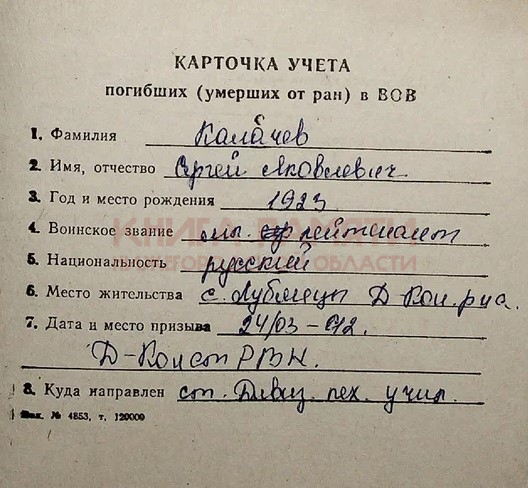 КАРТОЧКА УЧЕТА
погибших (умерших от ран) в ВОВ
1. Фамилия Калачев
2. Имя, отчество Сергей Яковлевич
3. Год и место рождения 1923
4. Воинское звание мл. лейтенант
КНИГА ПАМЯТИ
ОБЛАСТИ
5. Национальность русский
6. Место жительства с. Лубянецы Д-Кон. рна.
7. Дата и место призыва 24/03-42.
Д-Конст РВК.
8. Куда направлен ст. пех. учил.
Зак. № 4853, т. 120000